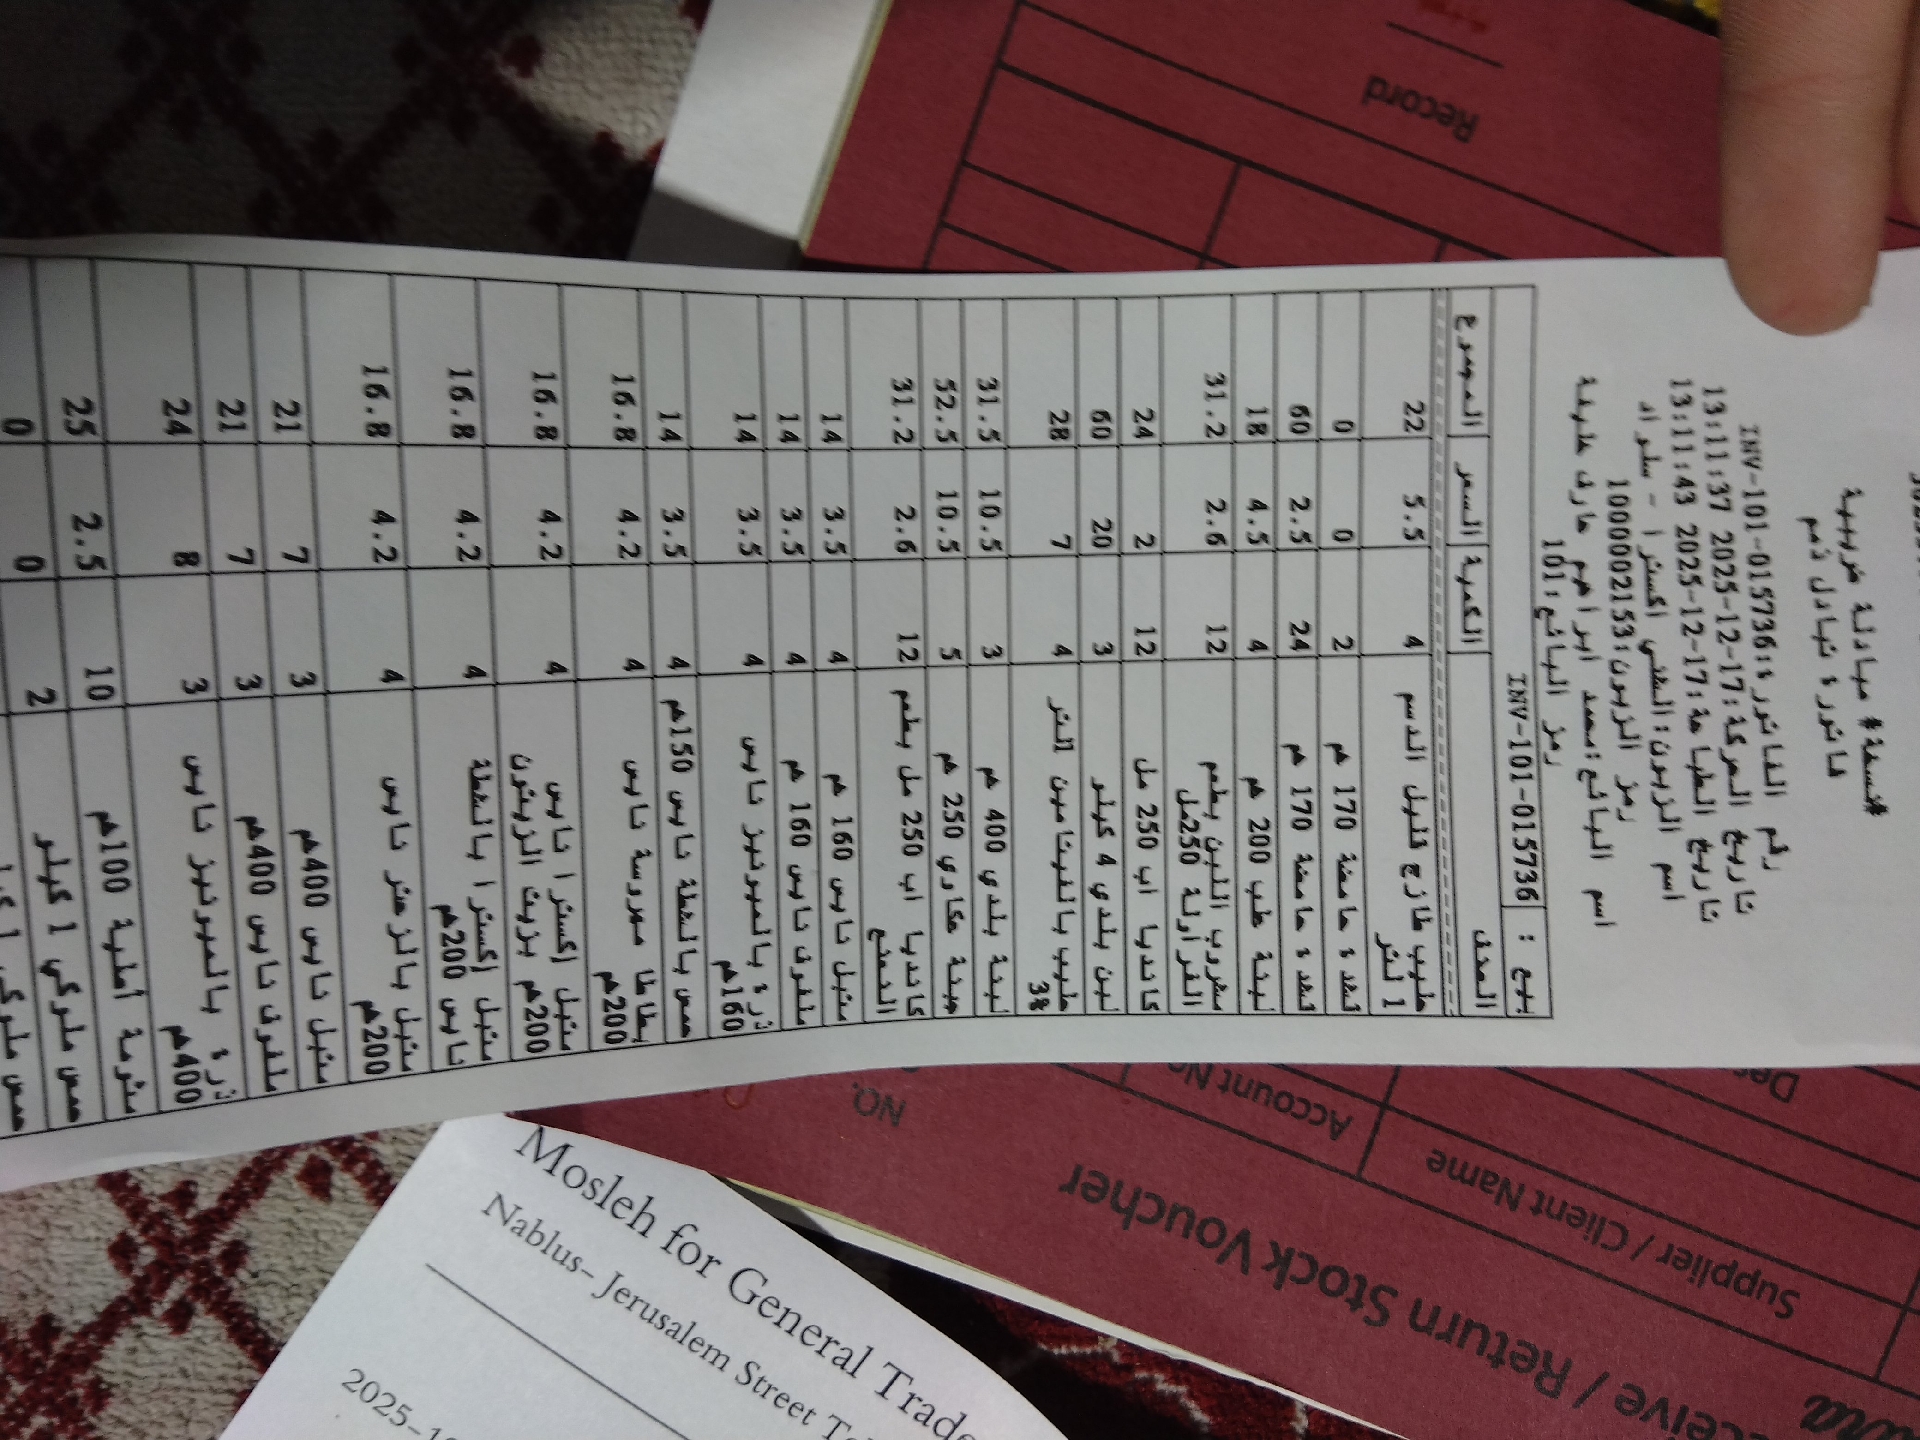 #نسخة# مبادلة ضريبية
فاتورة تبادل ذمم
رقم الفاتورة: INV-101-015736
تاريخ الحركة: 2025-12-17 13:11:37
تاريخ الطباعة: 2025-12-17 13:11:43
اسم الزبون: الشني اكسترا - سلواد
رمز الزبون: 1000002153
اسم البائع: محمد ابراهيم عارف
رمز البائع: 101
بيع : INV-101-015736
الصنف الكمية السعر المجموع
حليب طازج قليل الدسم 4 5.5 22
1 لتر
قشدة حامضة 170 غم 2 0 0
قشدة حامضة 170 غم 24 2.5 60
لبنة علب 200 غم 4 4.5 18
مشروب اللبن بطعم 12 2.6 31.2
الفراولة 250مل
كانديا اب 250 مل 12 2 24
لبن بلدي 4 كيلو 3 20 60
حليب بالفيتامين لتر 4 7 28
3%
لبنة بلدي 400 غم 3 10.5 31.5
جبنة عكاوي 250 غم 5 10.5 52.5
كانديا اب 250 مل بطعم 12 2.6 31.2
متبل نايس 160 غم 4 3.5 14
ملفوف نايس 160 غم 4 3.5 14
ذرة بالميونيز نايس 4 3.5 14
160غم
حمص بالشطة نايس 150غم 4 3.5 14
بطاطا مهروسة نايس 4 4.2 16.8
200غم
متبل إكسترا نايس 4 4.2 16.8
بزيت الزيتون 200غم
متبل إكسترا بالشطة 4 4.2 16.8
نايس 200غم
متبل بالزعتر نايس 4 4.2 16.8
200غم
متبل نايس 400غم 3 7 21
ملفوف نايس 400غم 3 7 21
ذرة بالميونيز نايس 3 8 24
400غم
مثومة أصلية 100غم 10 2.5 25
حمص ملوكي 1 كيلو 2 0 0
حمص ملوكي 1
Record
NO.
Account No
Supplier / Client Name
ceive / Return Stock Voucher
Mosleh for General Trade
Nablus- Jerusalem Street